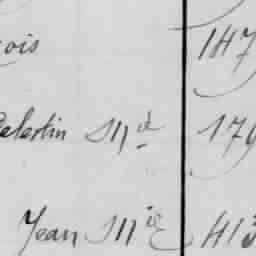 ois 147
Celestin Md 179
Jean Mie 413